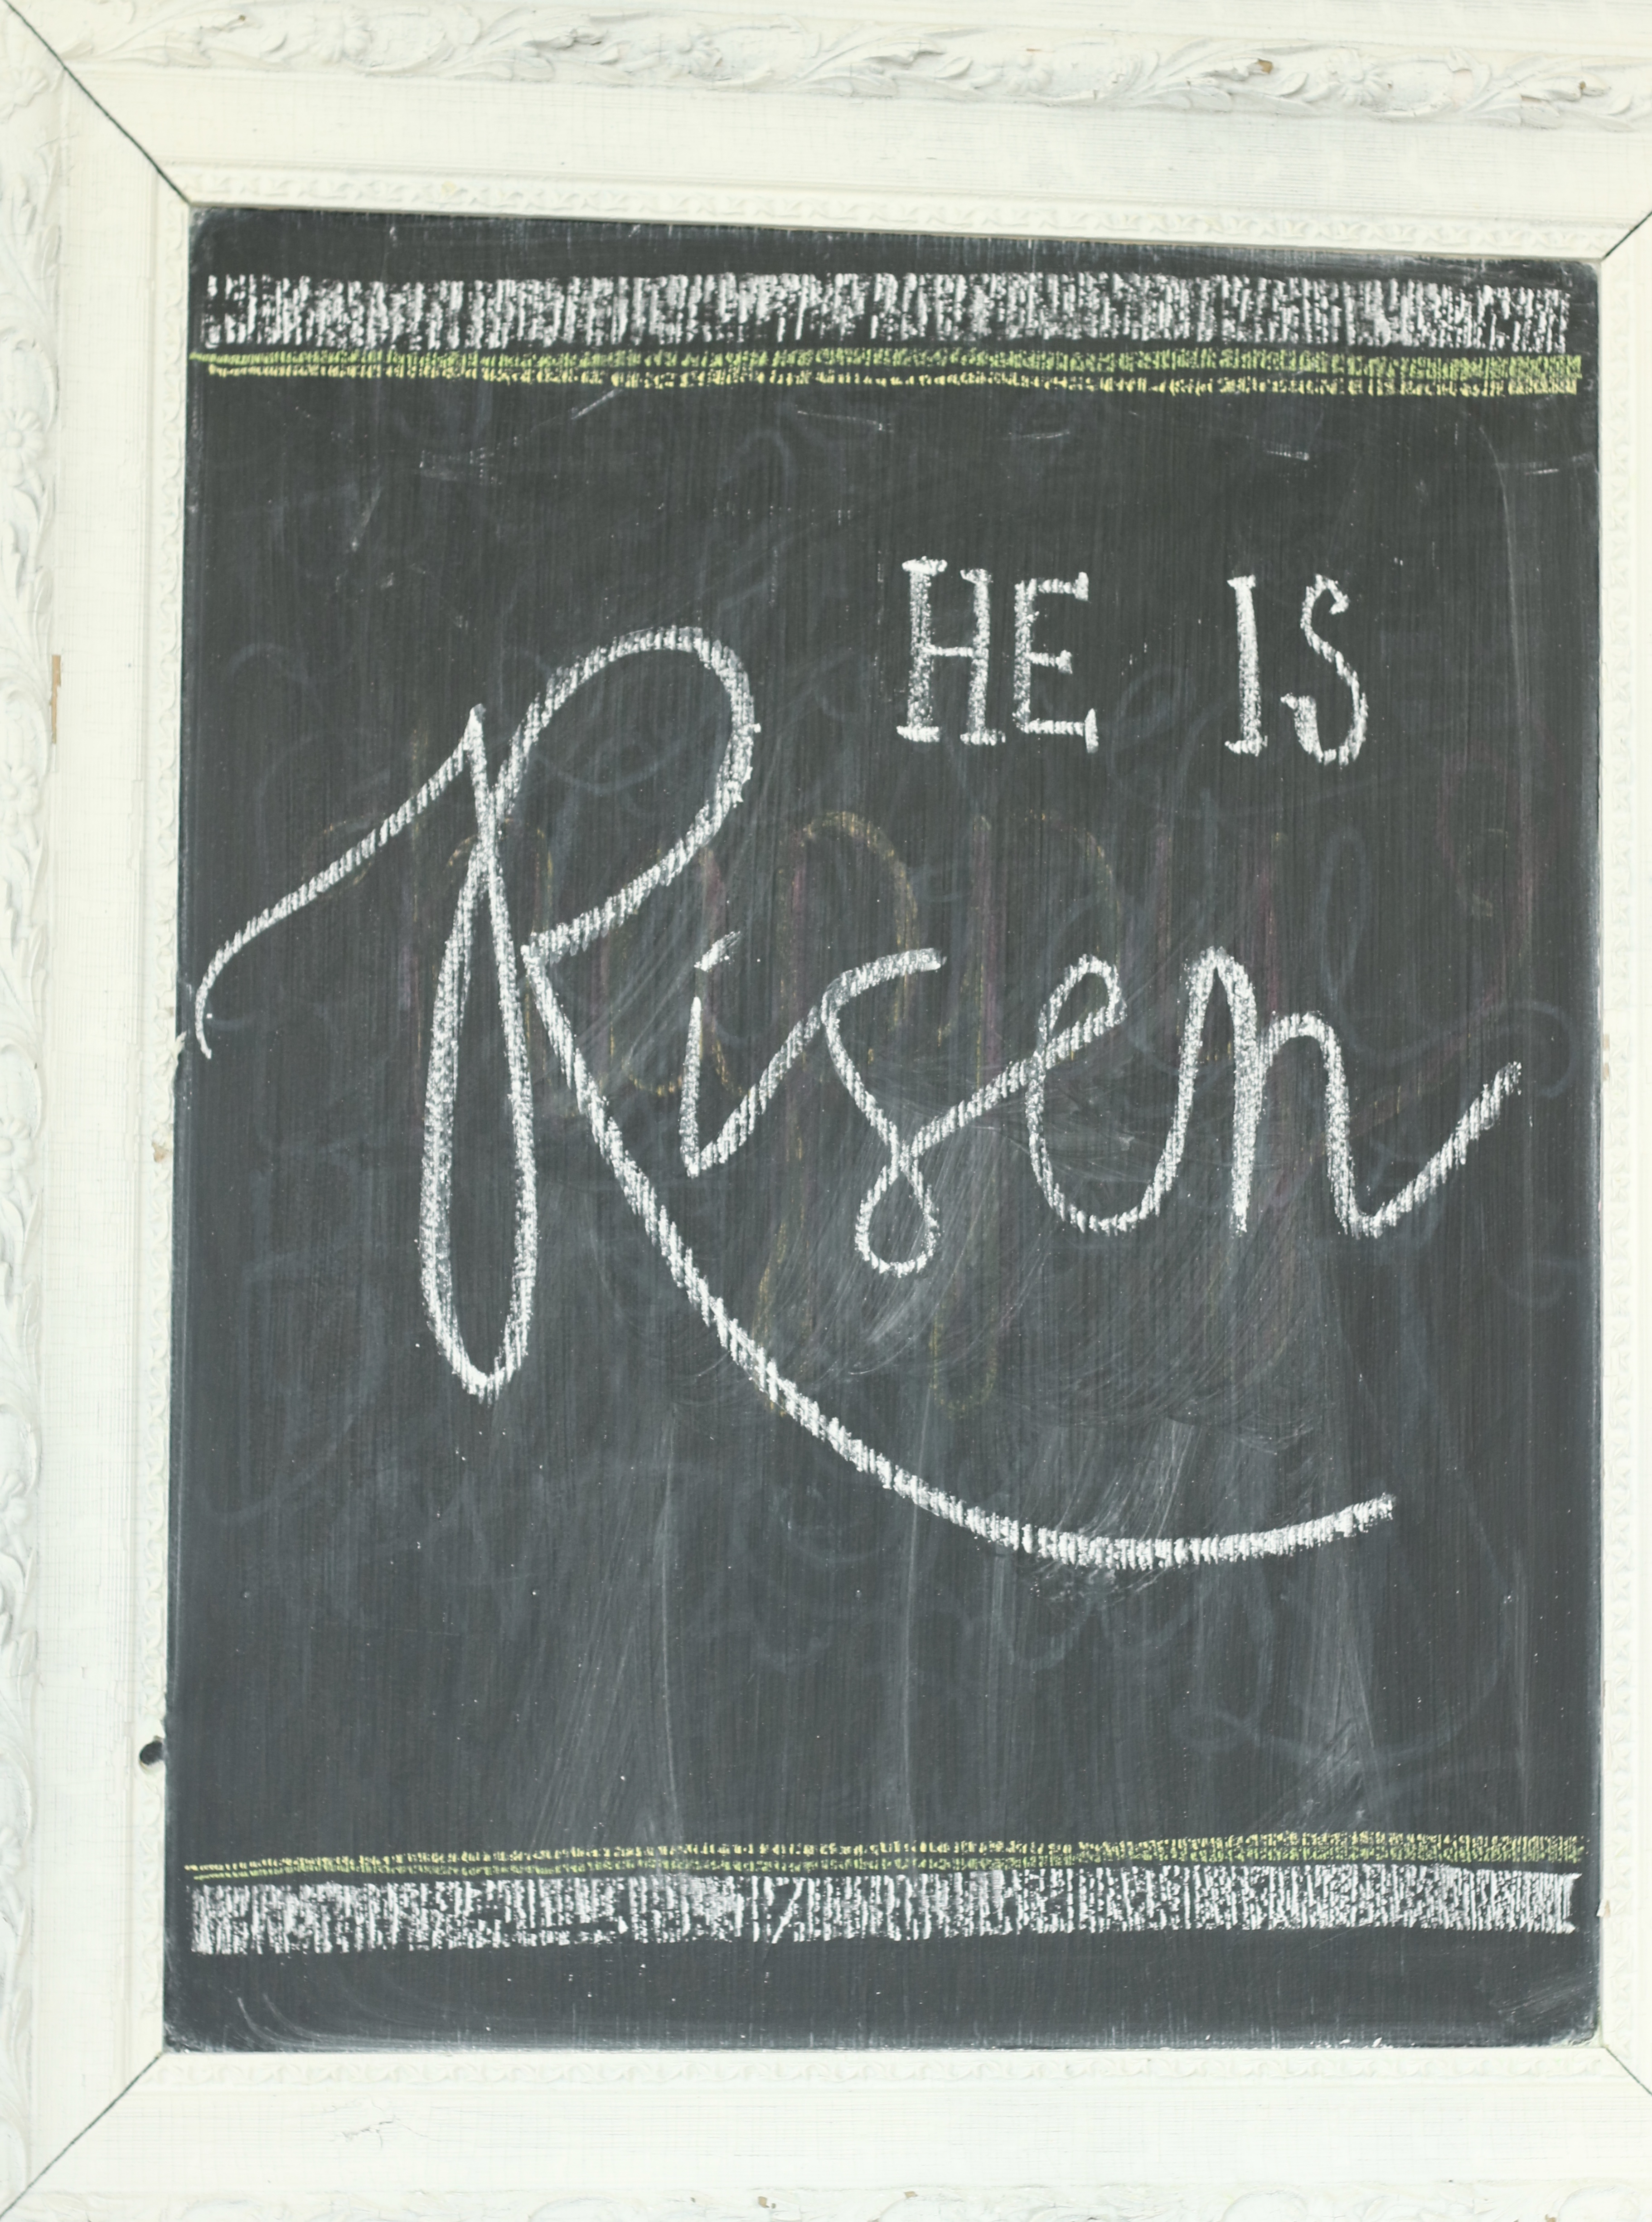 HE IS
Risen